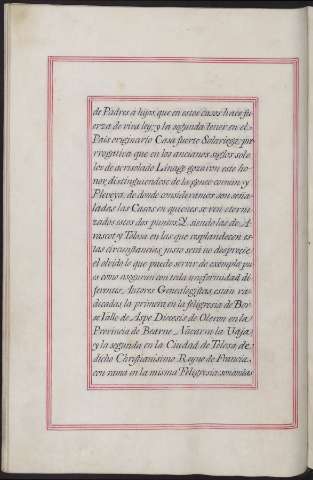 de Padres a hijos, que en estos casos hace fu
erza de viva ley; y la segunda tener en el
Pais originario Casa fuerte Solariega; pre
rrogativa que en los ancianos siglos solo
los de acrisolado Linage gozaron este ho
nor, distinguiendose de la gente comun y
Pleveya; de donde consideramos son seña
ladas las Casas en quienes se ven eterni
zados estos dos puntos; Y siendo las de A
rascot y Tolosa en las que resplandecen es
tas circustancias, justo será no desprecie
el olvido lo que puede servir de exemplo pu
es como aseguran con toda uniformidad di
ferentes Autores Genealogistas, estan ra
dicadas, la primera en la feligresia de Bor
se Valle de Aspe Diocesis de Oleron en la
Provincia de Bearne Navarra la Vaja,
y la segunda en la Ciudad de Tolosa, de
dicho Christianisimo Reyno de Francia,
con rama en la misma Feligresia; son ambas